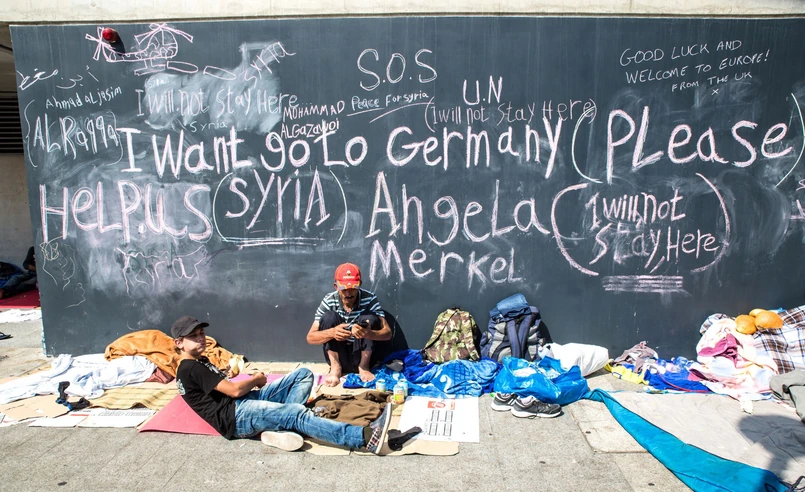 S.O.S
GOOD LUCK AND
WELCOME TO EUROPE!
FROM THE UK
x
Ahmad aljasim
ALRaqqa
Syria
I will not stay Here
Syria
MUHAMMAD
Peace For syria
U.N
(I will not stay Here)
I Want go to Germany (PLease)
HeLP.US (SyRIA) AngeLa
MeRKeL
(I will not
Stay Here)